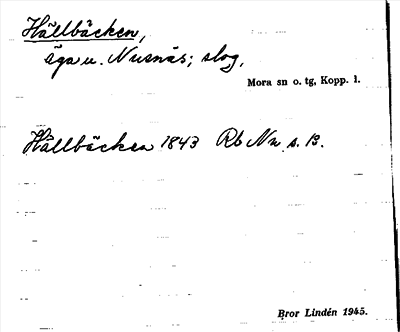 Hållbäcken,
äga u. Nusnäs; slog,
Mora sn o. tg, Kopp. l.
Hållbäcken 1843 Rb Nn s. 13.
Bror Lindén 1945.